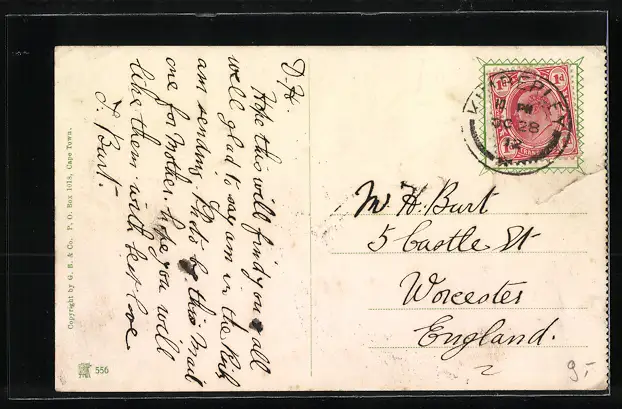 D. H.
Hope this will find you all
well glad to say am in the Pink
am sending Photo by this Mail
one for Mother. hope you will
like them with best love
F. Burt.
Copyright by G. B. & Co. P. O. Box 1618, Cape Town.
556
1d 1d
KIMBERLEY
11 PM
OC 28
12
Mr H. Burt
5 Castle St
Worcester
England.
9,-